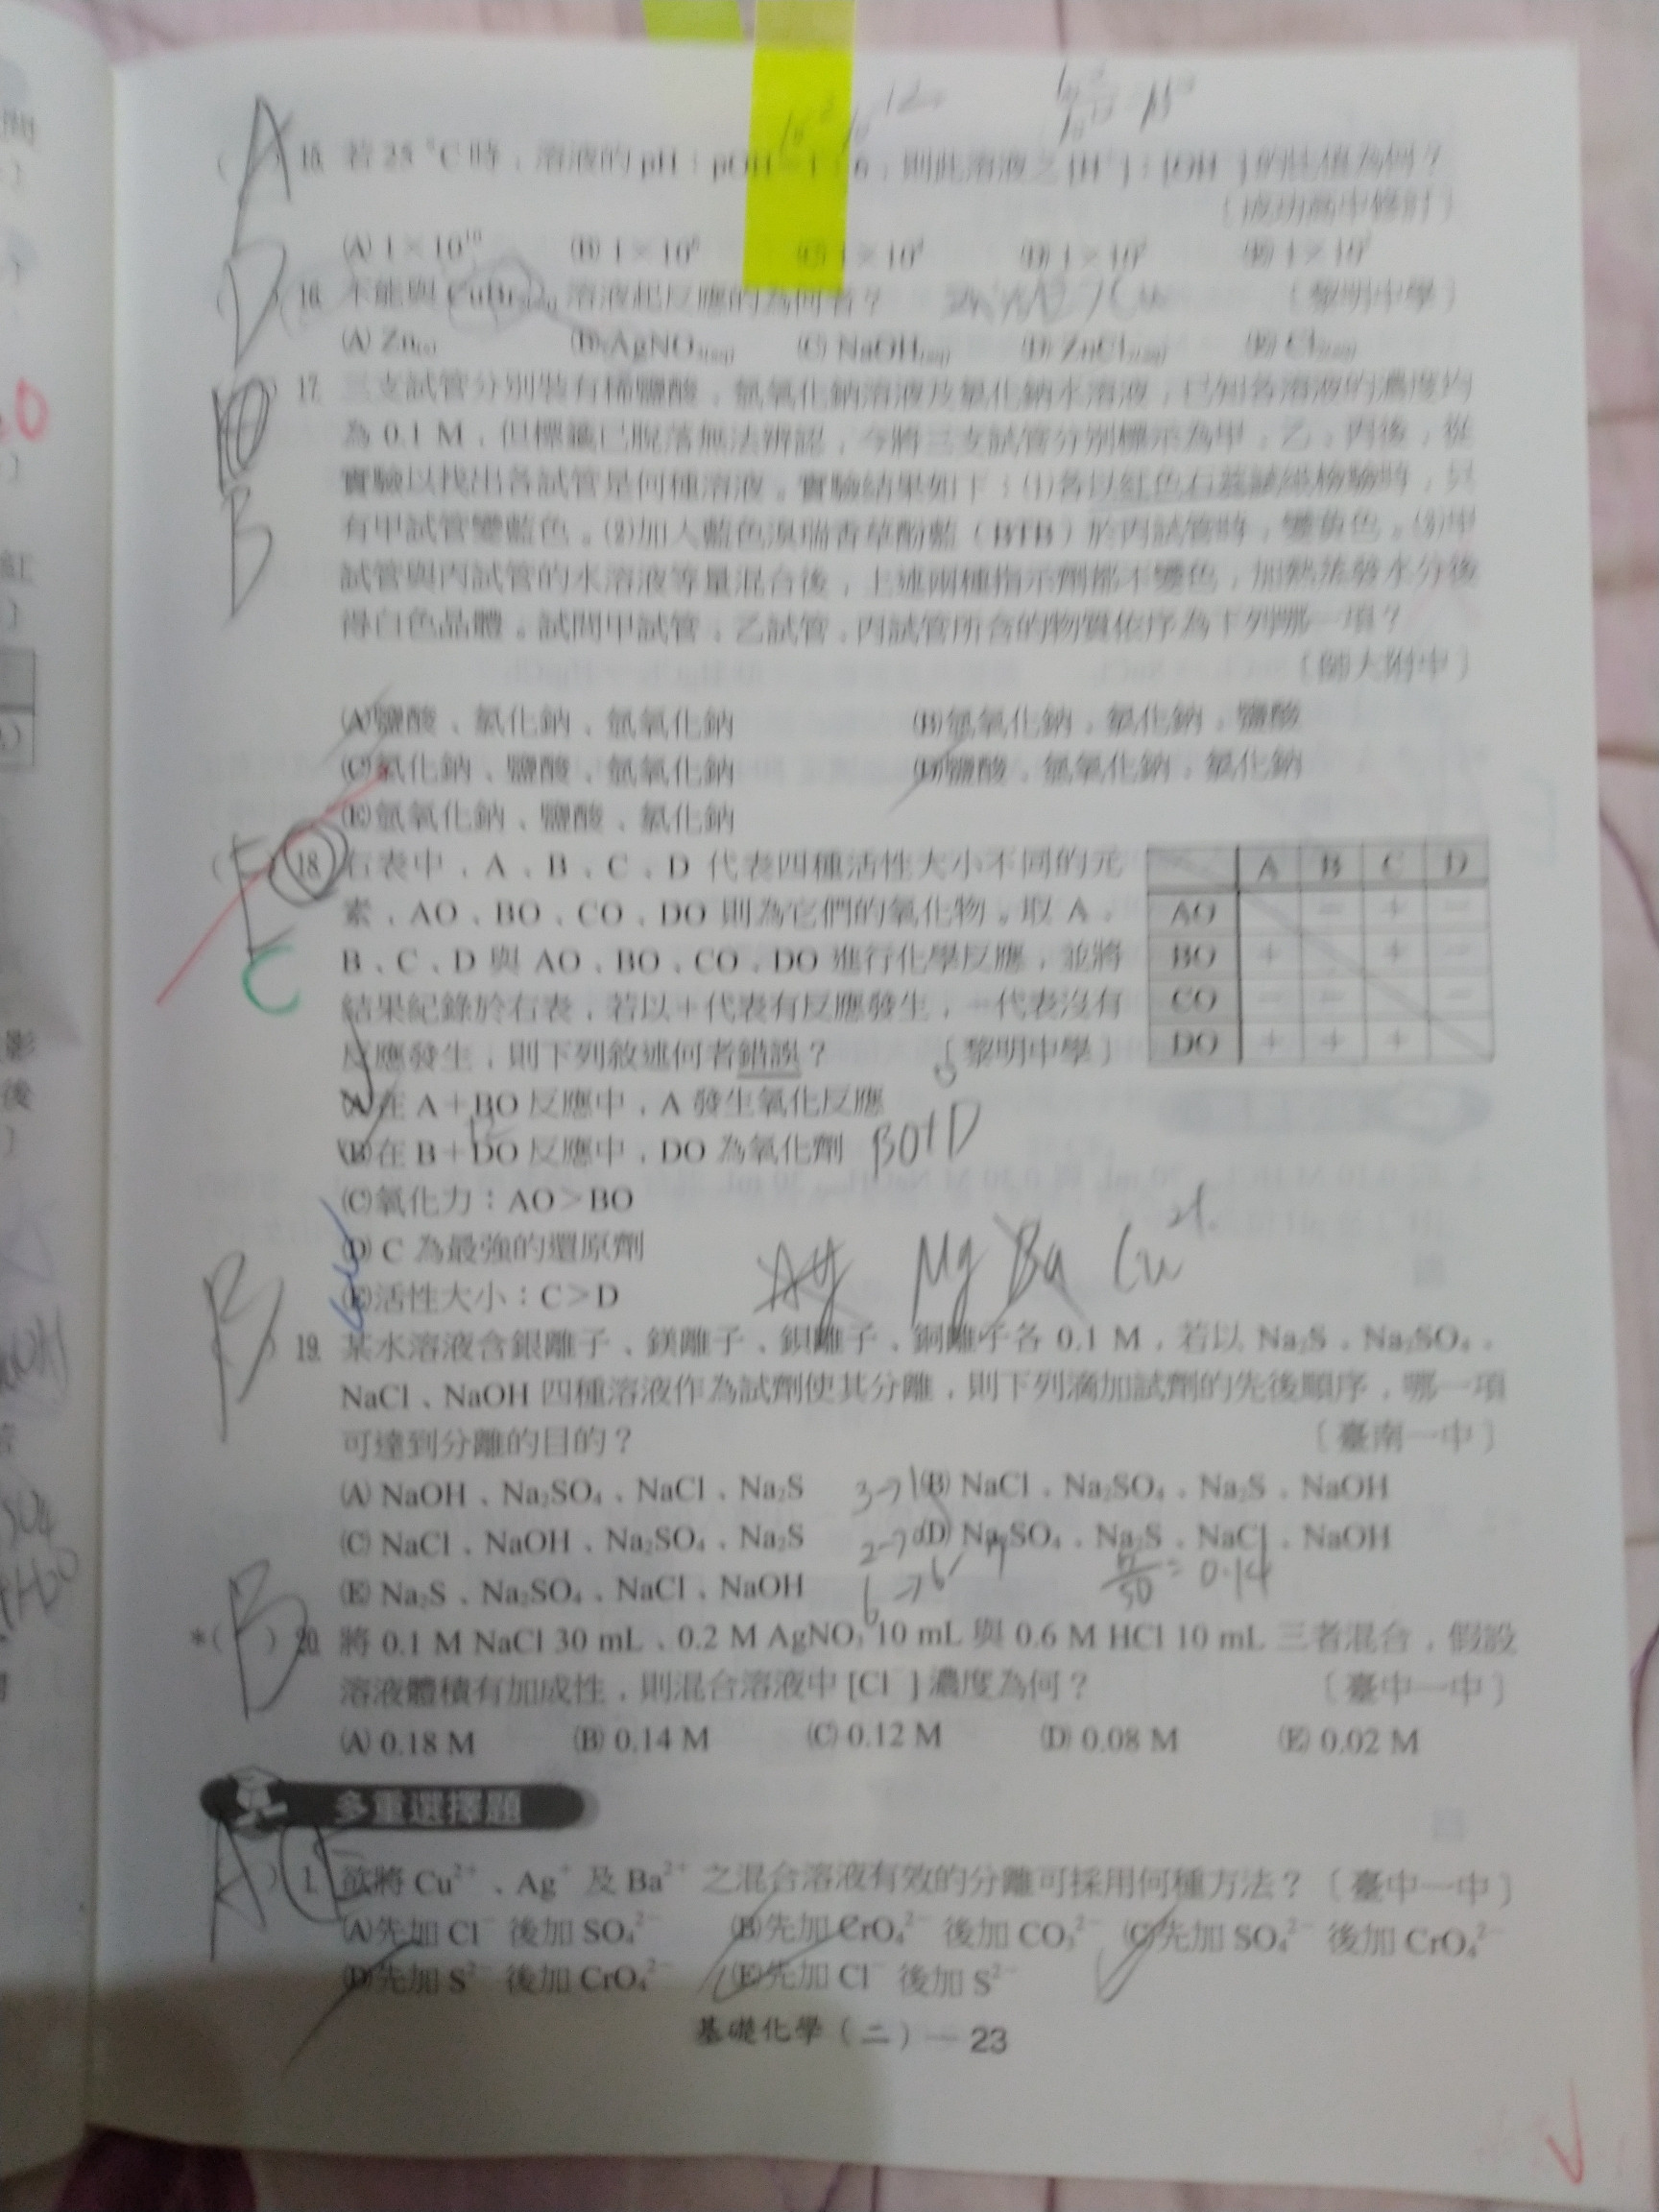 15. 若 25 °C 時，溶液的 pH：pOH＝1：6，則此溶液之 [H⁺]：[OH⁻] 的比值為何？
〔成功高中修訂〕
(A) 1×10¹⁰ (B) 1×10⁶ (C) 1×10⁴ (D) 1×10² (E) 1×10¹
16. 不能與 CuBr₂(aq) 溶液起反應的為何者？ 〔黎明中學〕
(A) Zn(s) (B) AgNO₃(aq) (C) NaOH(aq) (D) ZnCl₂(aq) (E) Cl₂(aq)
17. 三支試管分別裝有稀鹽酸、氫氧化鈉溶液及氯化鈉水溶液，已知各溶液的濃度均
為 0.1 M，但標籤已脫落無法辨認，今將三支試管分別標示為甲、乙、丙後，從
實驗以找出各試管是何種溶液。實驗結果如下：(1)各以紅色石蕊試紙檢驗時，只
有甲試管變藍色。(2)加入藍色溴瑞香草酚藍（BTB）於丙試管時，變黃色。(3)甲
試管與丙試管的水溶液等量混合後，上述兩種指示劑都不變色，加熱蒸發水分後
得白色晶體。試問甲試管、乙試管、丙試管所含的物質依序為下列哪一項？
〔師大附中〕
(A)鹽酸、氯化鈉、氫氧化鈉 (B)氫氧化鈉、氯化鈉、鹽酸
(C)氯化鈉、鹽酸、氫氧化鈉 (D)鹽酸、氫氧化鈉、氯化鈉
(E)氫氧化鈉、鹽酸、氯化鈉
18. 右表中，A、B、C、D 代表四種活性大小不同的元
素，AO、BO、CO、DO 則為它們的氧化物。取 A、
B、C、D 與 AO、BO、CO、DO 進行化學反應，並將
結果紀錄於右表，若以＋代表有反應發生，－代表沒有
反應發生，則下列敘述何者錯誤？ 〔黎明中學〕
A B C D
AO － ＋ －
BO ＋ ＋ －
CO － － －
DO ＋ ＋ ＋
(A)在 A＋BO 反應中，A 發生氧化反應
(B)在 B＋DO 反應中，DO 為氧化劑 BO+D
(C)氧化力：AO＞BO
(D) C 為最強的還原劑
(E)活性大小：C＞D
Ag Mg Ba Cu
19. 某水溶液含銀離子、鎂離子、鋇離子、銅離子各 0.1 M，若以 Na₂S、Na₂SO₄、
NaCl、NaOH 四種溶液作為試劑使其分離，則下列滴加試劑的先後順序，哪一項
可達到分離的目的？ 〔臺南一中〕
(A) NaOH、Na₂SO₄、NaCl、Na₂S (B) NaCl、Na₂SO₄、Na₂S、NaOH
(C) NaCl、NaOH、Na₂SO₄、Na₂S (D) Na₂SO₄、Na₂S、NaCl、NaOH
(E) Na₂S、Na₂SO₄、NaCl、NaOH
7/50 = 0.14
*( B ) 20. 將 0.1 M NaCl 30 mL、0.2 M AgNO₃ 10 mL 與 0.6 M HCl 10 mL 三者混合，假設
溶液體積有加成性，則混合溶液中 [Cl⁻] 濃度為何？ 〔臺中一中〕
(A) 0.18 M (B) 0.14 M (C) 0.12 M (D) 0.08 M (E) 0.02 M
多重選擇題
1. 欲將 Cu²⁺、Ag⁺ 及 Ba²⁺ 之混合溶液有效的分離可採用何種方法？〔臺中一中〕
(A)先加 Cl⁻ 後加 SO₄²⁻ (B)先加 CrO₄²⁻ 後加 CO₃²⁻ (C)先加 SO₄²⁻ 後加 CrO₄²⁻
(D)先加 S²⁻ 後加 CrO₄²⁻ (E)先加 Cl⁻ 後加 S²⁻
基礎化學（二）— 23